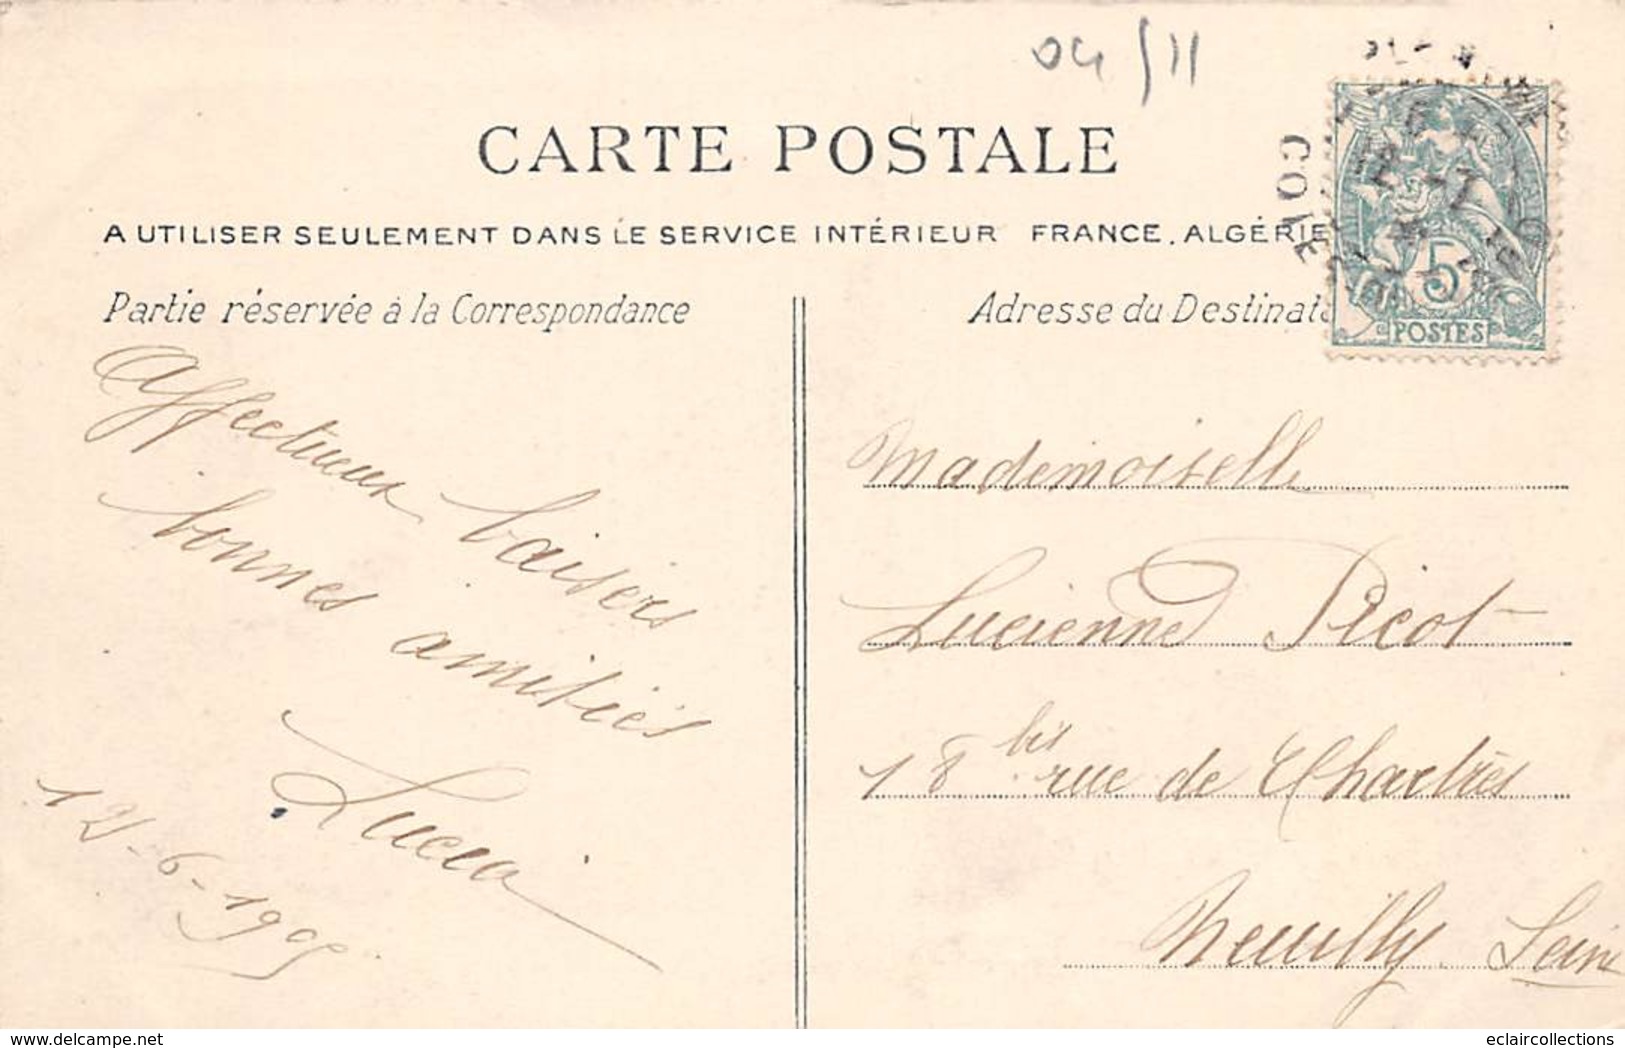 04/11
CARTE POSTALE
A UTILISER SEULEMENT DANS LE SERVICE INTÉRIEUR FRANCE, ALGÉRIE
Partie réservée à la Correspondance
Adresse du Destinata
5
POSTES
Affectueux baisers
bonnes amitiés
Lucia
12-6-1905
Mademoiselle
Lucienne Picot
18 bis rue de Chartres
Neuilly. Seine
www.delcampe.net
eclaircollections